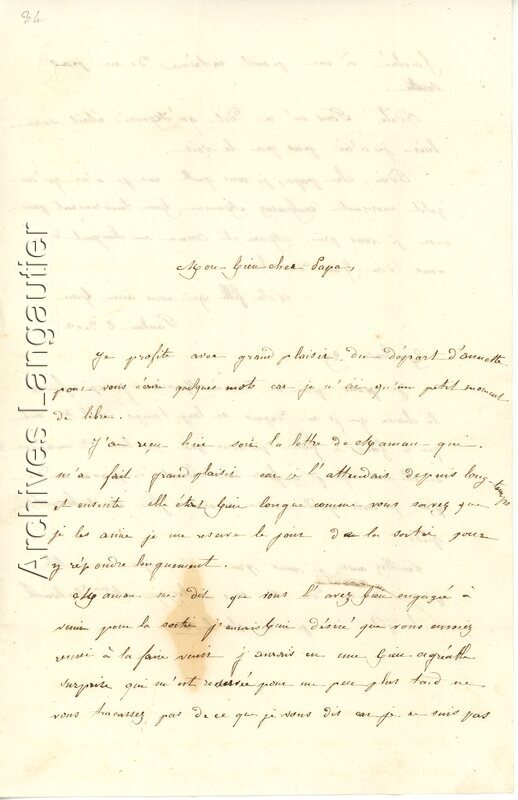 84
Mon bien cher Papa,
Je profite avec grand plaisir du départ d'annette
pour vous écrire quelques mots car je n'ai qu'un petit moment
de libre.
J'ai reçu hier soir la lettre de Maman qui
m'a fait grand plaisir car je l'attendais depuis long-temps
et ensuite elle était bien longue comme vous savez que
je les aime je me reserve le jour de la sortie pour
y répondre longuement.
Maman me dit que vous l'avez bien engagée à
venir pour la sortie j'aurais bien désiré que vous eussiez
reussi à la faire venir j'aurais eu une bien agréable
surprise qui m'est reservée pour un peu plus tard ne
vous tracassez pas de ce que je vous dit car je ne suis pas
Archives Langautier